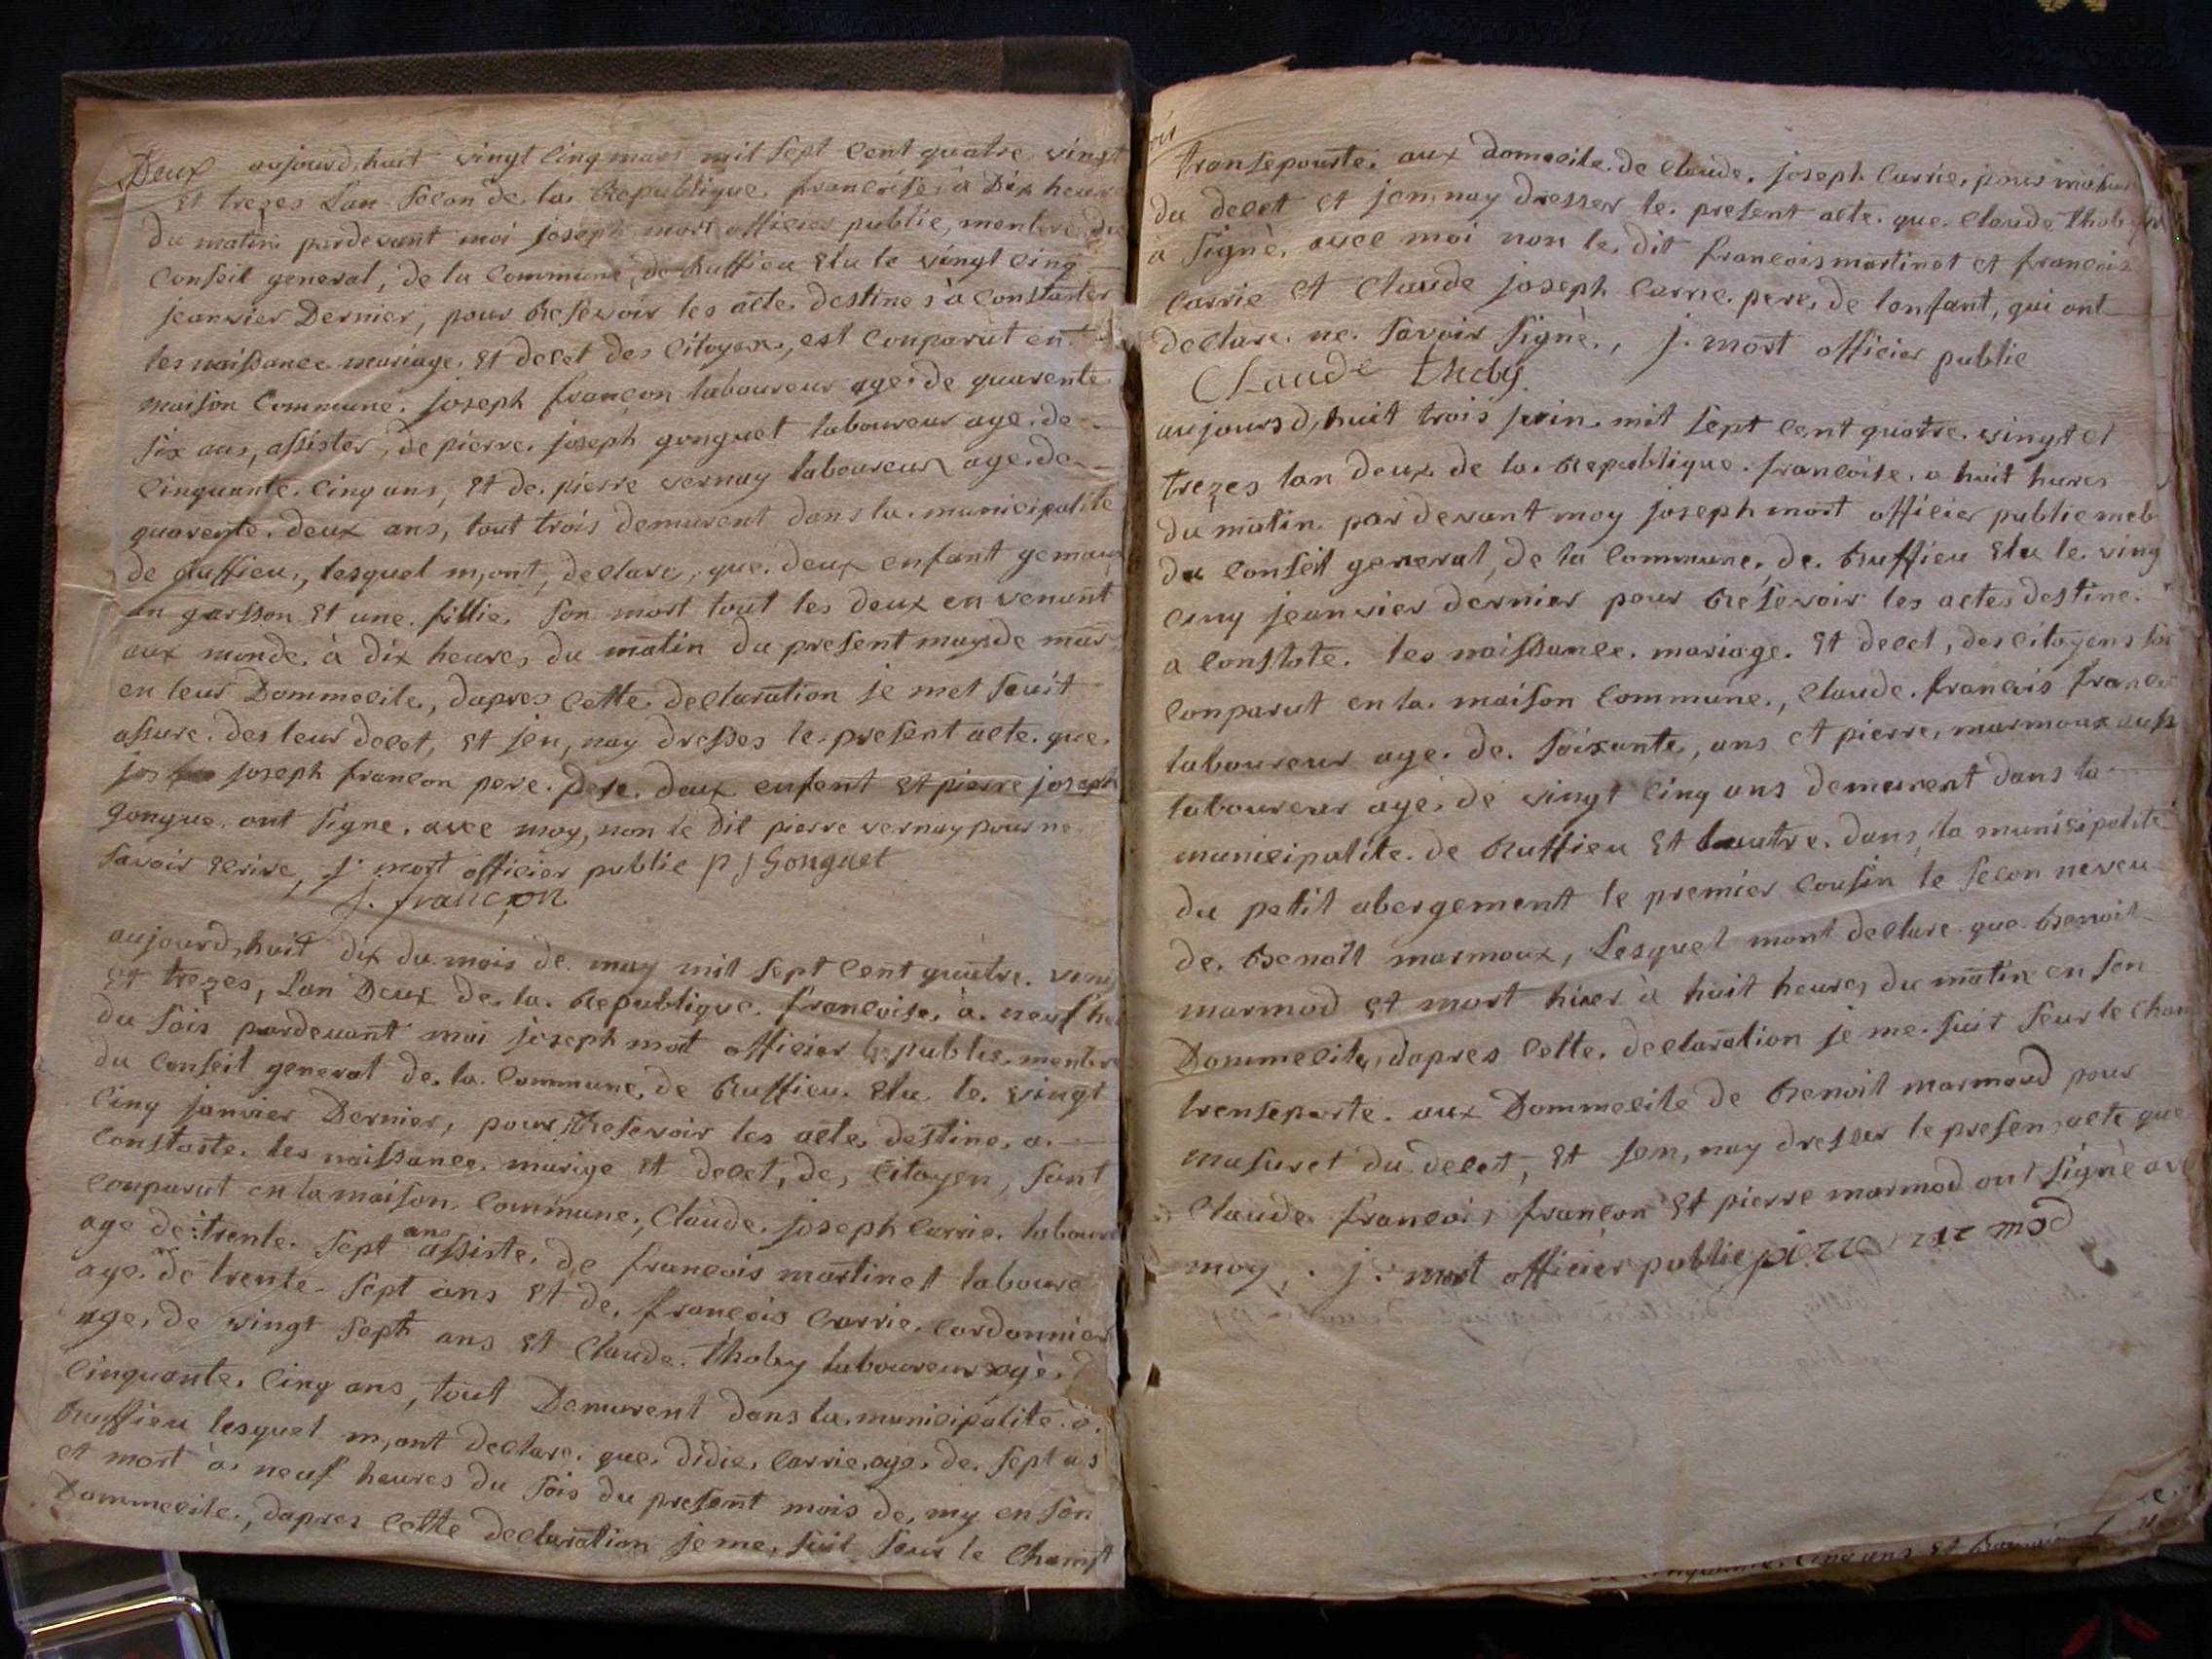 Deux aujourd,huit vingt cinq mars mil sept cent quatre vingt
et trezes Lan Secon de la Republique francoise, à Dix heure
du matin pardevant moi joseph mort officier public, menbre du
Conseil general, de la Commune, de Ruffieu Elu le vingt cinq
jeanvier Dernier, pour Resevoir les acte destine s'a Constater
les naissance mariage et decet des Citoyens, est Conparut en
maison Commune. joseph françon laboureur age de quarente
six ans, assister, de pierre joseph gonguet laboureur age de
Cinquante Cinq ans, et de pierre vernay laboureur age de
quarente deux ans, tout trois demurent dans la municipalite
de Ruffieu, lesquel m,ont, declare, que deux enfant gemaux
un garsson et une fillie, son mort tout les deux en venant
aux monde, à dix heures du matin du present mays de mars
en leur Dommecile, dapres Cette declaration je met suit
assure des leur decet, et jen,nay dresses le present acte que
jos joseph francon pere de se deux enfent et pierre joseph
gongue ont signe, avec moy, non le dit pierre vernay pour ne
savoir Ecrire, j. mort officier public p j Gonguet
j. francon
aujourd,huit dix du mois de may mil sept Cent quatre ving
et trezes, Lan Deux de la Republique francoise, à neuf heu
du sois pardevant moi joseph mort officier public menbre
du Conseil general de la Commune, de Ruffieu Elu le vingt
Cinq janvier Dernier, pour Resevoir les acte destine, a
Constaste les naissance marige et decet, de, Citoyen, sont
Conparut en la maison Commune, Claude joseph Carrie laboure
age de trente sept ans assiste, de francois martinet laboure
age de trente sept ans et de françois Carrie Cordonnier
age, de vingt sept ans et Claude thoby laboureur age, d
Cinquante Cinq ans, tout Demurent dans la municipalite d
Ruffieu lesquel m,ont declare que didie, Carrie, age de sept as
et mort à neuf heures du sois du present mois de, my en son
Dommecile, dapres Cette declaration je me suit sur le Champt
transepourte aux domecile de Claude joseph Carrie, pour
du decet et jen,nay dresser le present acte que Claude thob
à signè, avec moi non le dit francois martinet et francois
Carrie et Claude joseph Carrie pere, de lonfant, qui ont
declare ne savoir signè, j. mort officier public
Claude thoby
aujours d,huit trois juin mit sept cent quatre vingt et
trezes lan deux de la Republique francoise a huit hures
du matin par devant moy joseph mort officier public meb
du Conseil general, de la Commune, de Ruffieu Elu le ving
cinq jeanvier dernier pour Resevoir les actes destine
a Constate les naissance mariage et decet, des citoyens
Conparut en la maison Commune, Claude francois
laboureur age de soixante, ans et pierre, marmoux
laboureur age de vingt Cinq ans demurent dans la
municipalite de Ruffieu et lautre dans la municipalité
du petit abergement le premier Cousin le secon neveu
de Benoît marmoux, Lesquel mont declare que Benoit
marmod et mort hier à huit heures du matin en son
Dommecile, dapres Cette declaration je me suit seur le Cham
trenseporte aux Dommecile de Benoit marmoud pour
masuret du decet, et jen,nay dresser le presen acte que
Claude francois françon et pierre marmod ont signè ave
moy, j. mort officier public pierre marmod